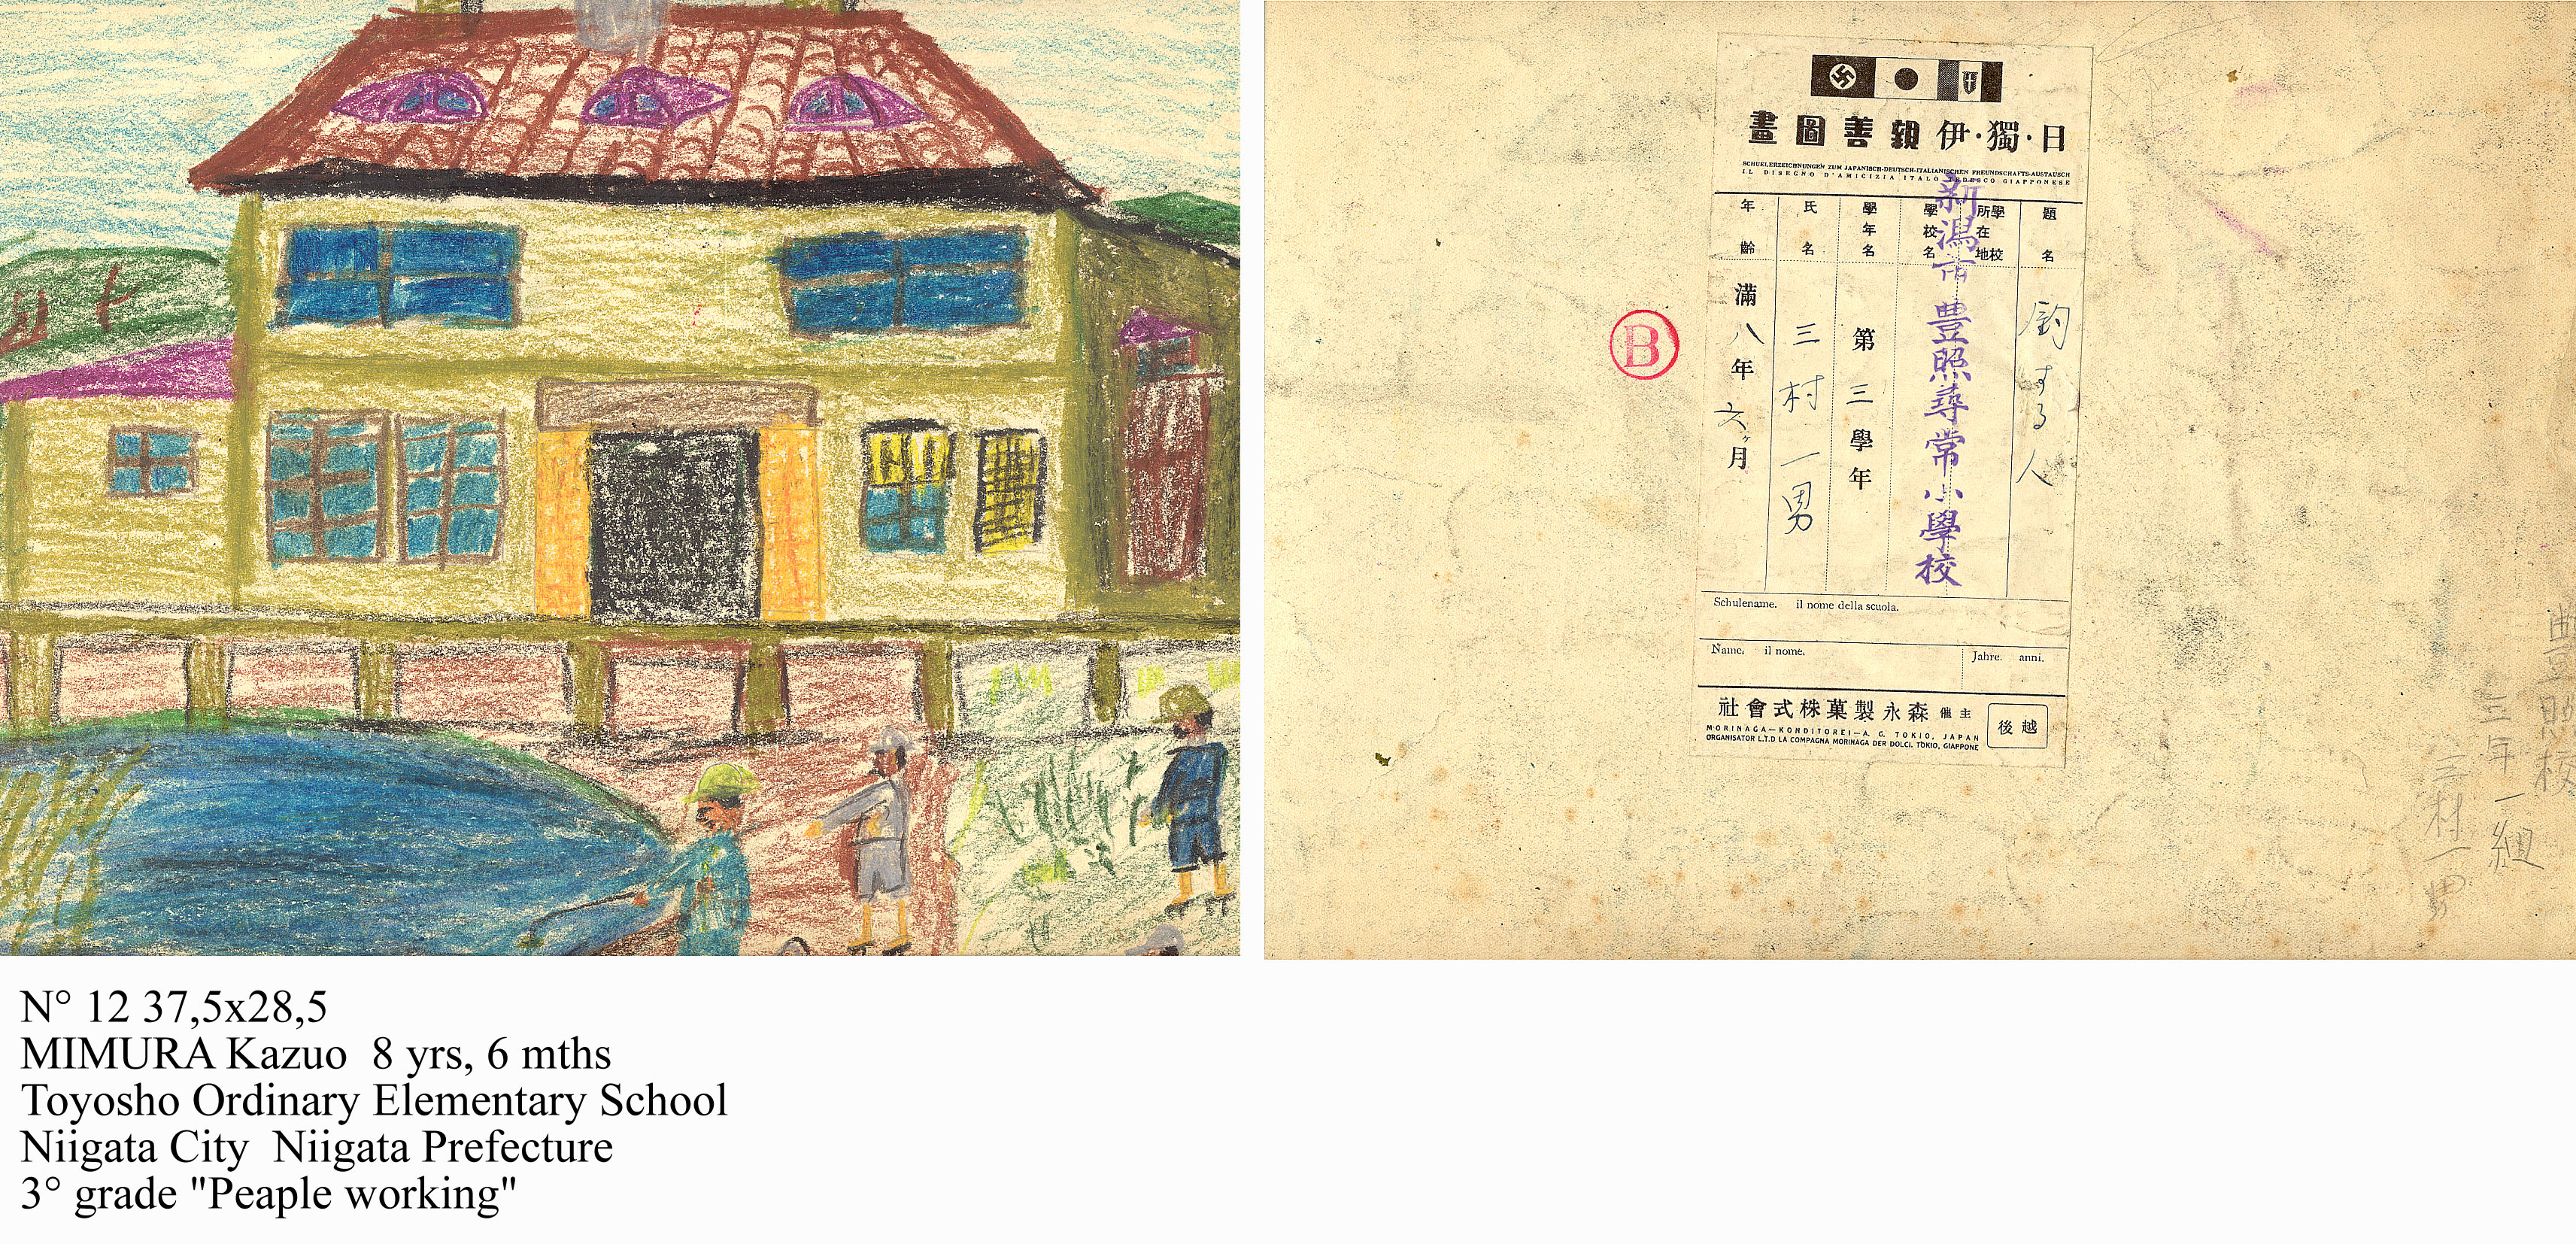 日・獨・伊親善圖畫
SCHUELERZEICHNUNGEN ZUM JAPANISCH-DEUTSCH-ITALIANISCHEN FREUNDSCHAFTS-AUSTAUSCH
IL DISEGNO D'AMICIZIA ITALO TEDESCO GIAPPONESE
題名
する人
學校所在地
學校名
新潟市豊照尋常小學校
學年名
第三學年
氏名
三村一男
年齡
満八年六ヶ月
B
Schulename. il nome della scuola.
Name. il nome.
Jahre. anni.
主催 森永製菓株式會社
MORINAGA—KONDITOREI—A. G. TOKIO, JAPAN
ORGANISATOR L.T.D LA COMPAGNA MORINAGA DER DOLCI. TOKIO, GIAPPONE
越後
豊照校
三年一組
三村一男
N° 12 37,5x28,5
MIMURA Kazuo 8 yrs, 6 mths
Toyosho Ordinary Elementary School
Niigata City Niigata Prefecture
3° grade "Peaple working"